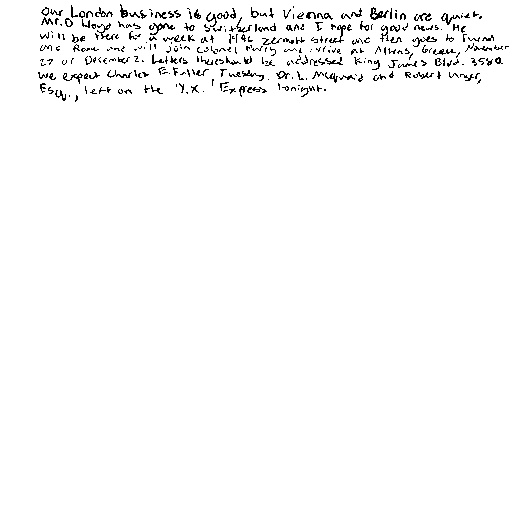 Our London business is good, but Vienna and Berlin are quiet.
Mr. D Lloyd has gone to Switzerland and I hope for good news. He
will be there for a week at 1496 Zermott street and then goes to Turin
and Rome and will join Colonel Parry and arrive at Athens, Greece, November
27 or December 2. Letters there should be addressed King James Blvd. 3580.
We expect Charles E. Fuller Tuesday. Dr. L. McQuaid and Robert Unger,
Esq., left on the "Y.X." Express tonight.